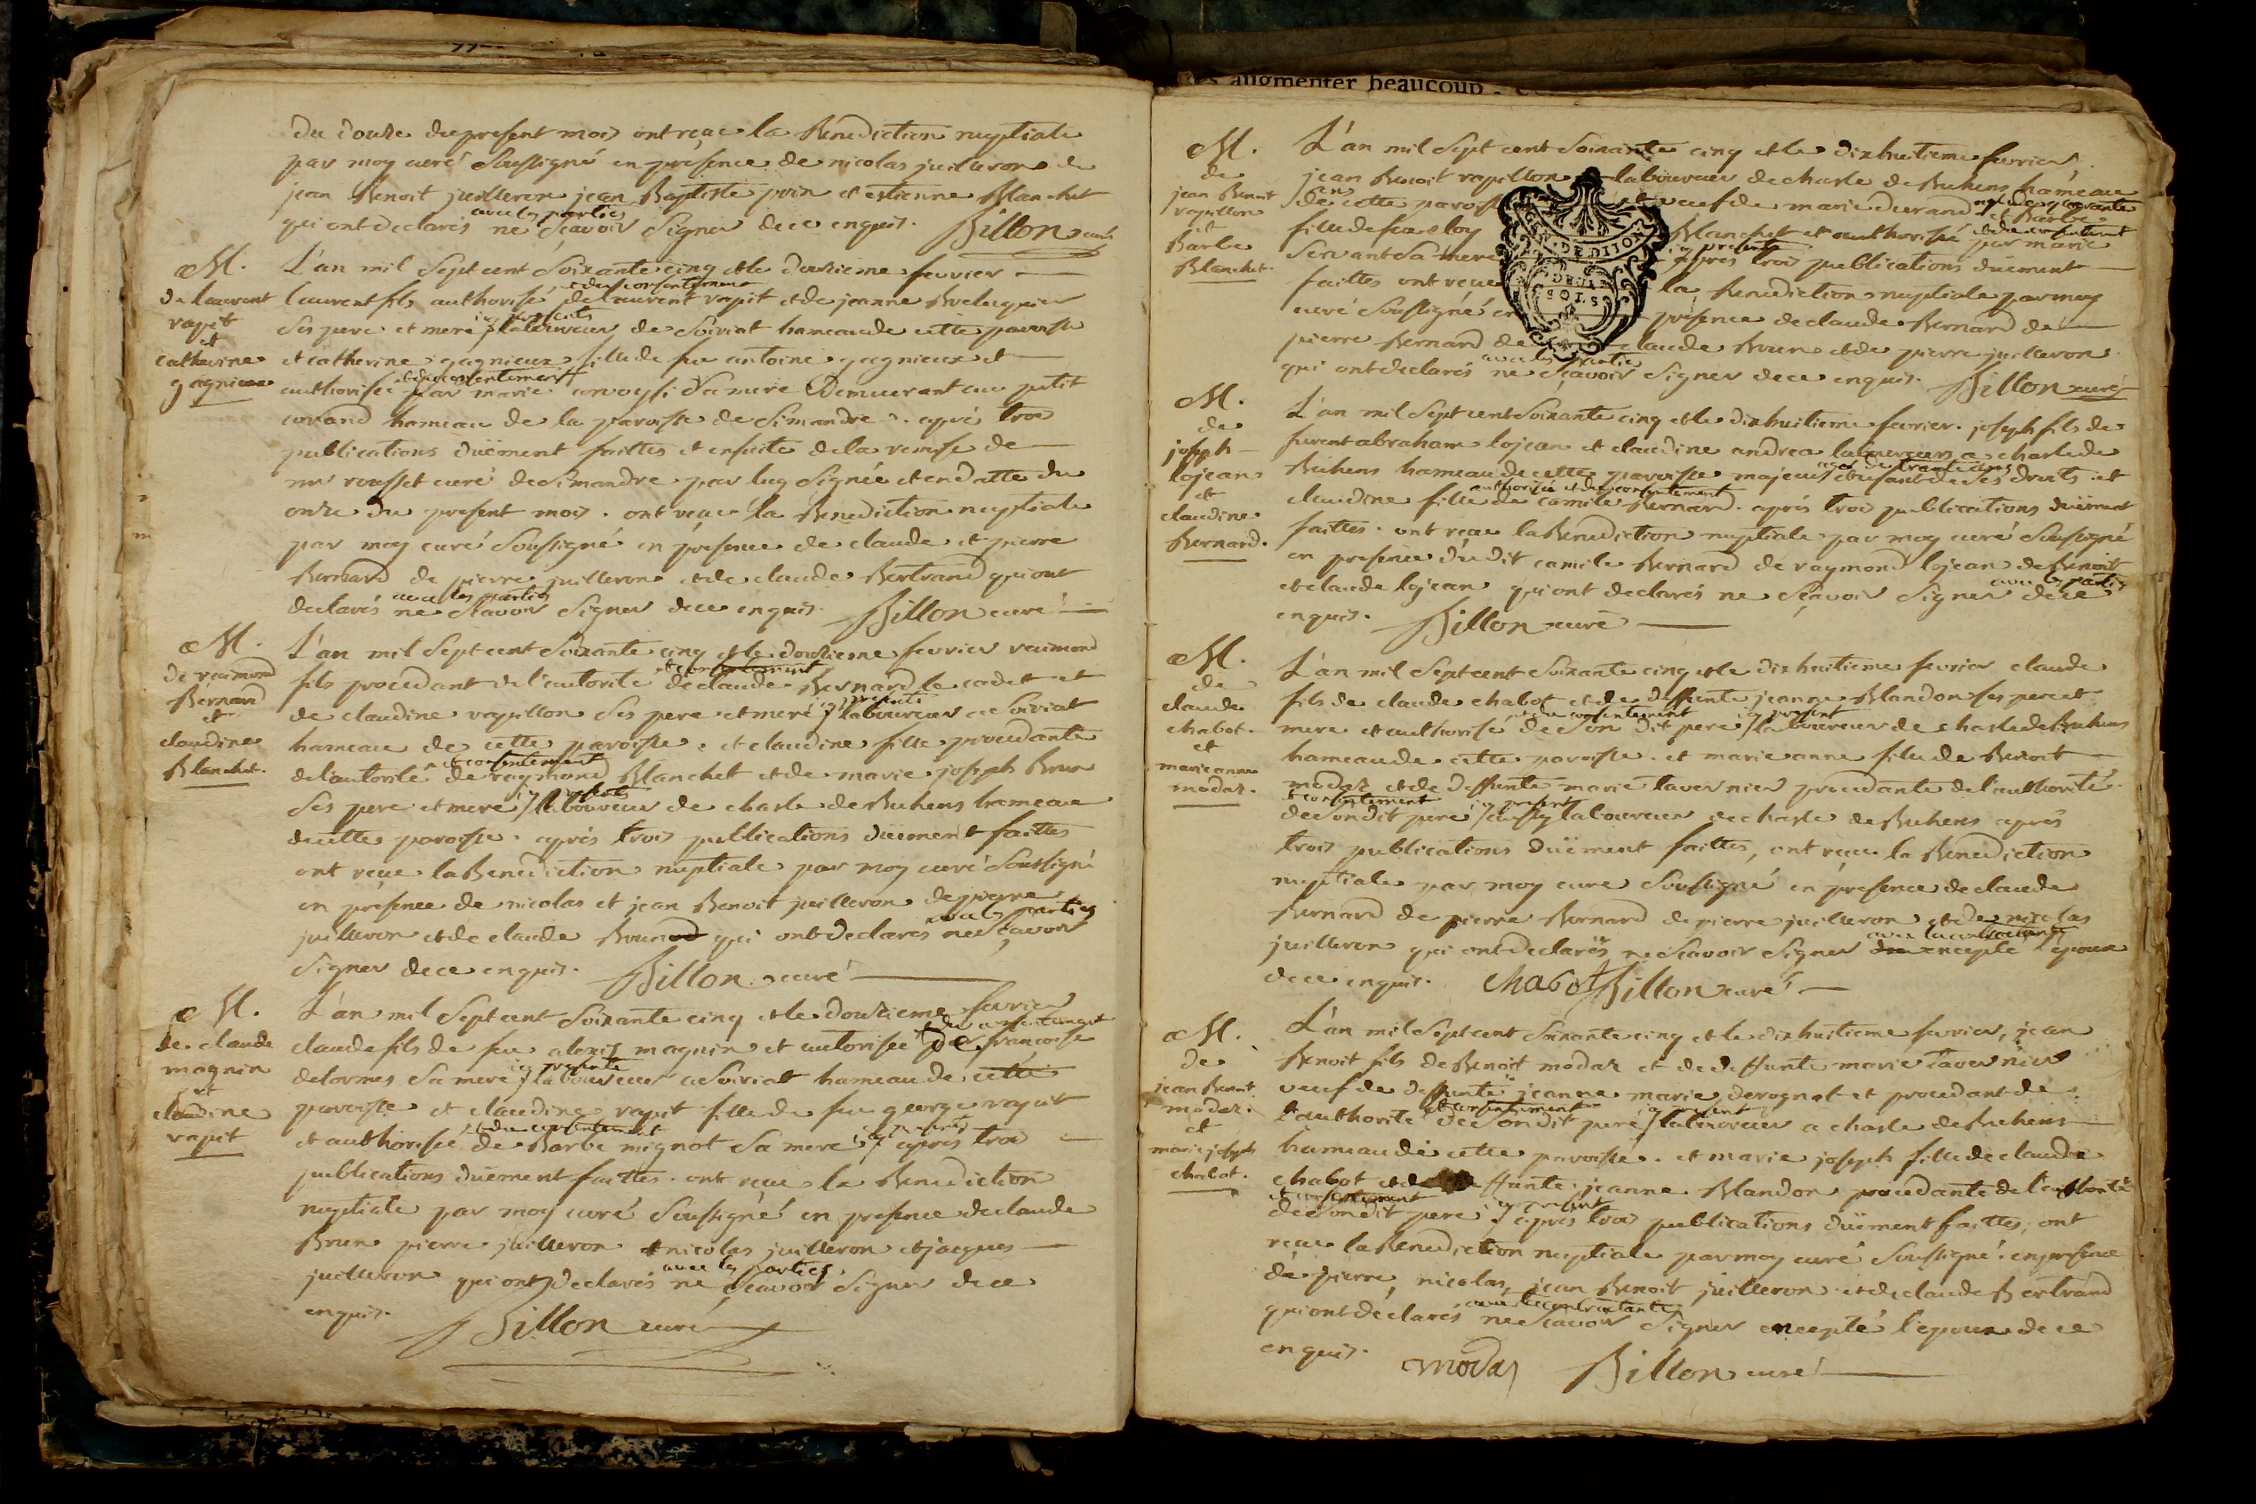 du douze du present mois ont reçue la Benediction nuptiale
par moy curé soussigné en presence de nicolas juilleron de
jean Benoit juilleron jean Baptiste poin et estienne Blanchet
avec les parties
qui ont declarés ne sçavoir signer de ce enquis. Billon curé
M.
de laurent
rapit
et
catherine
gagnieux
L'an mil sept cent soixante cinq et le douzieme fevrier
et du consentement
laurent fils authorisé de laurent rapit et de jeanne
icy presents
ses pere et mere laboureur de soiriat hameau de cette paroisse
et catherine gagnieux fille de feu antoine gagnieux et
et du consentement
authorisée par marie sa mere Demeurant au petit
corand hameau de la paroisse de Simandre. aprés trois
publications düement faittes et ensuite de la remise de
mr rousset curé de Simandre par luy signée et en datte du
onze du present mois. ont reçue la Benediction nuptiale
par moy curé soussigné en presence de claude et pierre
Bernard de pierre juilleron et de claude Bertrand qui ont
avec les parties
declarés ne sçavoir signer de ce enquis. Billon curé
M.
de reimond
Bernard
et
claudine
Blanchet.
L'an mil sept cent soixante cinq et le douzieme fevrier reimond
et consentement
fils procedant de l'autorité de claude Bernard le cadet et
icy presents
de claudine rapillon ses pere et mere laboureur a Soiriat
hameau de cette paroisse. et claudine fille procedante
et consentement
de l'autorité de raymond Blanchet et de marie joseph Brun
icy presents
ses pere et mere laboureur de charle de Buhens hameau
de cette paroisse. aprés trois publications düement faittes
ont reçue la Benediction nuptiale par moy curé soussigné
en presence de nicolas et jean Benoit juilleron de pierre
avec les parties
juilleron et de claude qui ont declarés ne sçavoir
signer de ce enquis. Billon curé
M.
de claude
magnin
et
claudine
rapit
L'an mil sept cent soixante cinq et le douzieme fevrier
et du consentement
claude fils de feu alexis magnin et autorisé de francoise
icy presente
delormes sa mere laboureur a Soiriat hameau de cette
paroisse et claudine rapit fille de feu george rapit
et du consentement icy presente
et authorisée de Barbe mignot sa mere aprés trois
publications düement faittes. ont reçue la Benediction
nuptiale par moy curé soussigné en presence de claude
Brun pierre juilleron nicolas juilleron et jacques
avec les parties
juilleron qui ont declarés ne sçavoir signer de ce
enquis.
Billon curé
M.
de
jean Benoit
rapillon
et
Barbe
Blanchet.
L'an mil sept cent soixante cinq et le dixhuitieme fevrier
jean Benoit rapillon laboureur de charle de Buhens hameau
de cette paroisse veuf de marie durand et Barbe
et du consentement
fille de feu eloy Blanchet et authorisé par marie
icy presente
servant sa mere aprés trois publications düement
faittes ont reçue la Benediction nuptiale par moy
curé soussigné en presence de claude Bernard de
pierre Bernard de claude Brun et de pierre juilleron
avec les parties
qui ont declarés ne sçavoir signer de ce enquis. Billon curé
M.
de
joseph
lojean
et
claudine
Bernard.
L'an mil sept cent soixante cinq et le dixhuitieme fevrier. joseph fils de
furent abraham lojean et claudine andrea laboureurs a charle de
agé de trante ans
Buhens hameau de cette paroisse majeur usant de ses droits et
authorisée et du consentement
claudine fille de camile Bernard. aprés trois publications düement
faittes. ont reçue la Benediction nuptiale par moy curé soussigné
en presence du dit camile Bernard de raymond lojean de Benoit
avec les parties
et claude lojean qui ont declarés ne sçavoir signer de ce
enquis. Billon curé
M.
de
claude
chabot.
et
marie anne
modaz.
L'an mil sept cent soixante cinq et le dixhuitieme fevrier claude
fils de claude chabot et de deffunte jeanne Blandon ses pere et
et du consentement icy present
mere et authorisé de son dit pere laboureur de charle de Buhens
hameau de cette paroisse. et marie anne fille de Benoit
modaz et de deffunte marie tavernier procedante de l'authorité
et consentement icy present
de son dit pere aussy laboureur de charle de Buhens aprés
trois publications düement faittes, ont reçue la Benediction
nuptiale par moy curé soussigné en presence de claude
Bernard de pierre Bernard de pierre juilleron et de nicolas
juilleron qui ont declarés ne sçavoir signer excepté l'epoux
de ce enquis. chabot Billon curé
M.
de
jean Benoit
modaz.
et
marie joseph
chabot.
L'an mil sept cent soixante cinq et le dixhuitieme fevrier, jean
Benoit fils de Benoit modaz et de deffunte marie tavernier
veuf de deffunte jeanne marie derognat et procedant de
et consentement icy present
l'authorité de son dit pere laboureur a charle de Buhens
hameau de cette paroisse. et marie joseph fille de claude
chabot et de deffunte jeanne Blandon procedante de l'authorité
et consentement icy present
de son dit pere aprés trois publications düement faittes, ont
reçue la Benediction nuptiale par moy curé soussigné. en presence
de pierre, nicolas, jean Benoit juilleron et de claude Bertrand
avec la contractante
qui ont declarés ne sçavoir signer excepté l'epoux de ce
enquis. modaz Billon curé